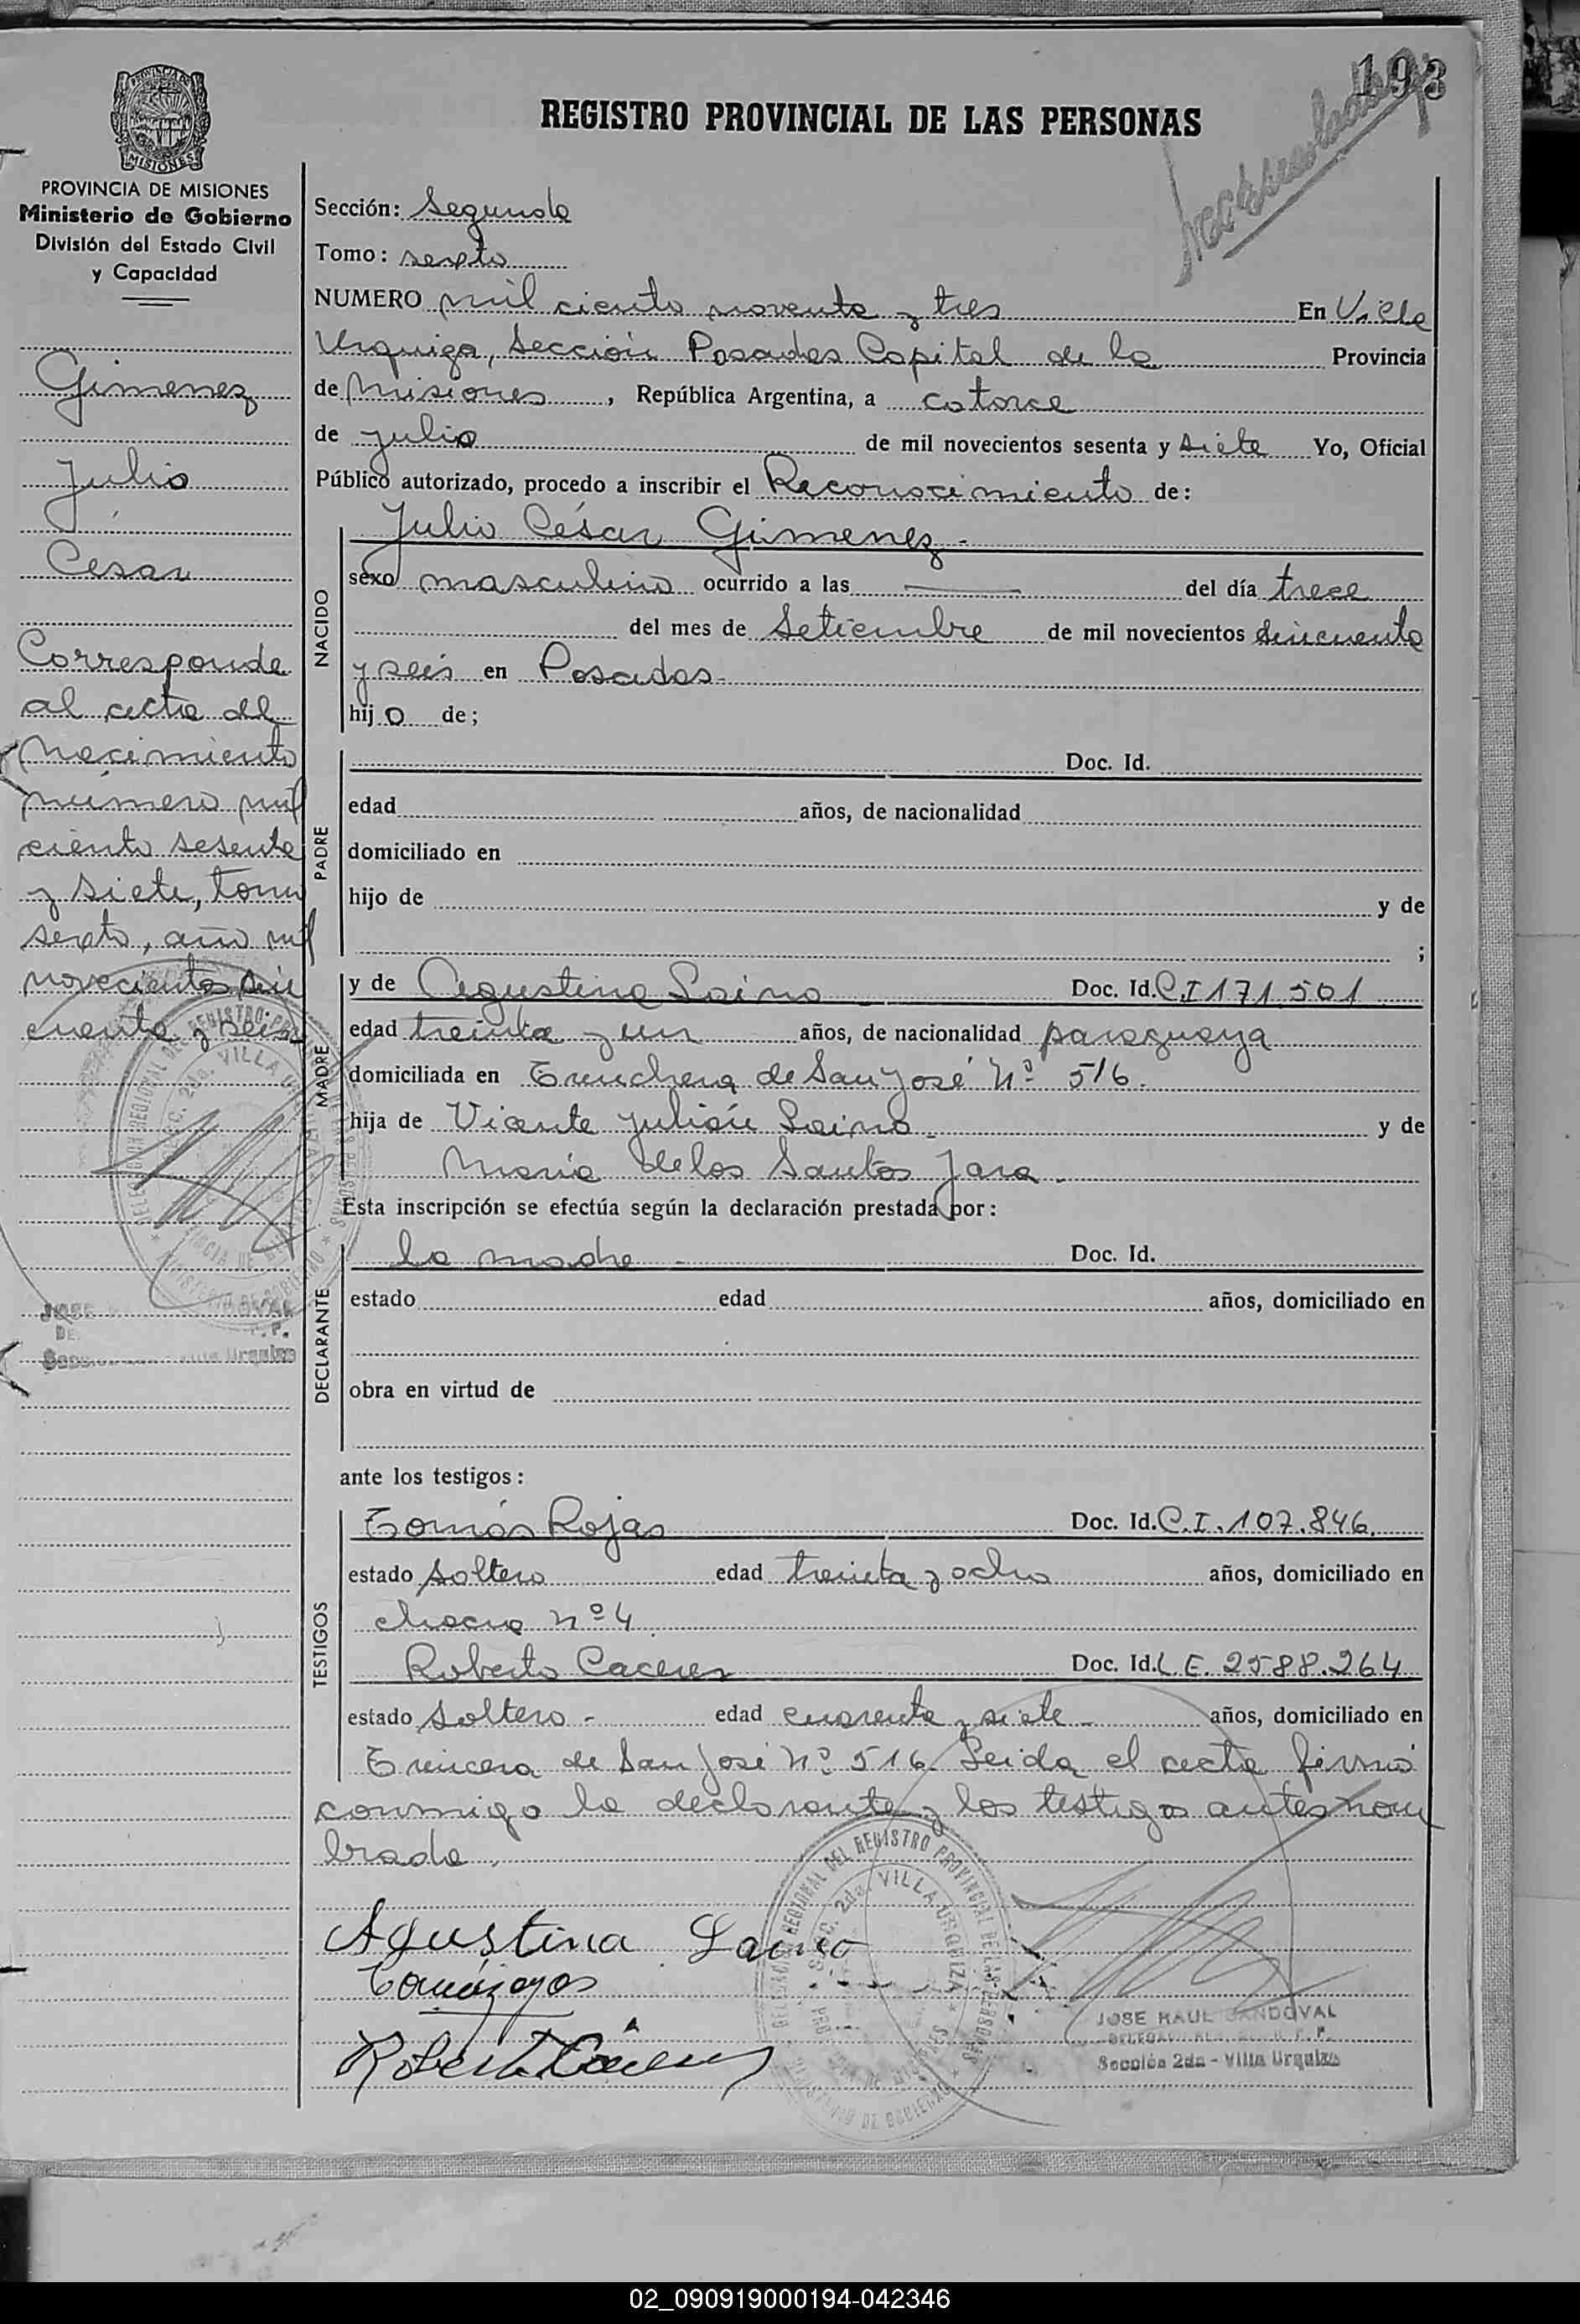 193
REGISTRO PROVINCIAL DE LAS PERSONAS
MISIONES
PROVINCIA DE MISIONES
Ministerio de Gobierno
División del Estado Civil
y Capacidad
Gimenez
Julio
Cesar
Corresponde
al acta de
Nacimiento
número mil
ciento sesenta
y siete, tomo
sexto, año mil
novecientos sin
cuenta y seis
Sección: Segunda
Tomo: sexto
NUMERO mil ciento noventa y tres En Villa
Urquiza, Sección Posadas Capital de la Provincia
de Misiones, República Argentina, a catorce
de julio de mil novecientos sesenta y siete Yo, Oficial
Público autorizado, procedo a inscribir el Reconocimiento de:
NACIDO
Julio César Gimenez.-
sexo masculino ocurrido a las — del día trece
del mes de Setiembre de mil novecientos sincuenta
y seis en Posadas.-
hijo de;
PADRE
Doc. Id.
edad años, de nacionalidad
domiciliado en
hijo de y de
;
MADRE
y de Agustina Laino - Doc. Id. C.I 171.501
edad treinta y un años, de nacionalidad paraguaya
domiciliada en Trinchera de San José Nº 516.
hija de Vicente Julián Laino.- y de
Maria de los Santos Jara.
Esta inscripción se efectúa según la declaración prestada por:
DECLARANTE
la madre - Doc. Id.
estado edad años, domiciliado en
obra en virtud de
ante los testigos:
TESTIGOS
Tomás Rojas Doc. Id. C.I. 107.846.
estado soltero edad treinta y ocho años, domiciliado en
chacra nº 4.
Roberto Caceres Doc. Id. L.E. 2588.264
estado soltero.- edad cuarenta y siete - años, domiciliado en
Trincera de San José Nº 516. Leida el acta firmó
conmigo la declarante y los testigos antes nom
brada.
Agustina Laino
Roberto Cáceres
DELEGACION REGIONAL DEL REGISTRO PROVINCIAL DE LAS PERSONAS
SECC. 2da. VILLA URQUIZA
MINISTERIO DE GOBIERNO
JOSE RAUL SANDOVAL
Sección 2da - Villa Urquiza
02_090919000194-042346